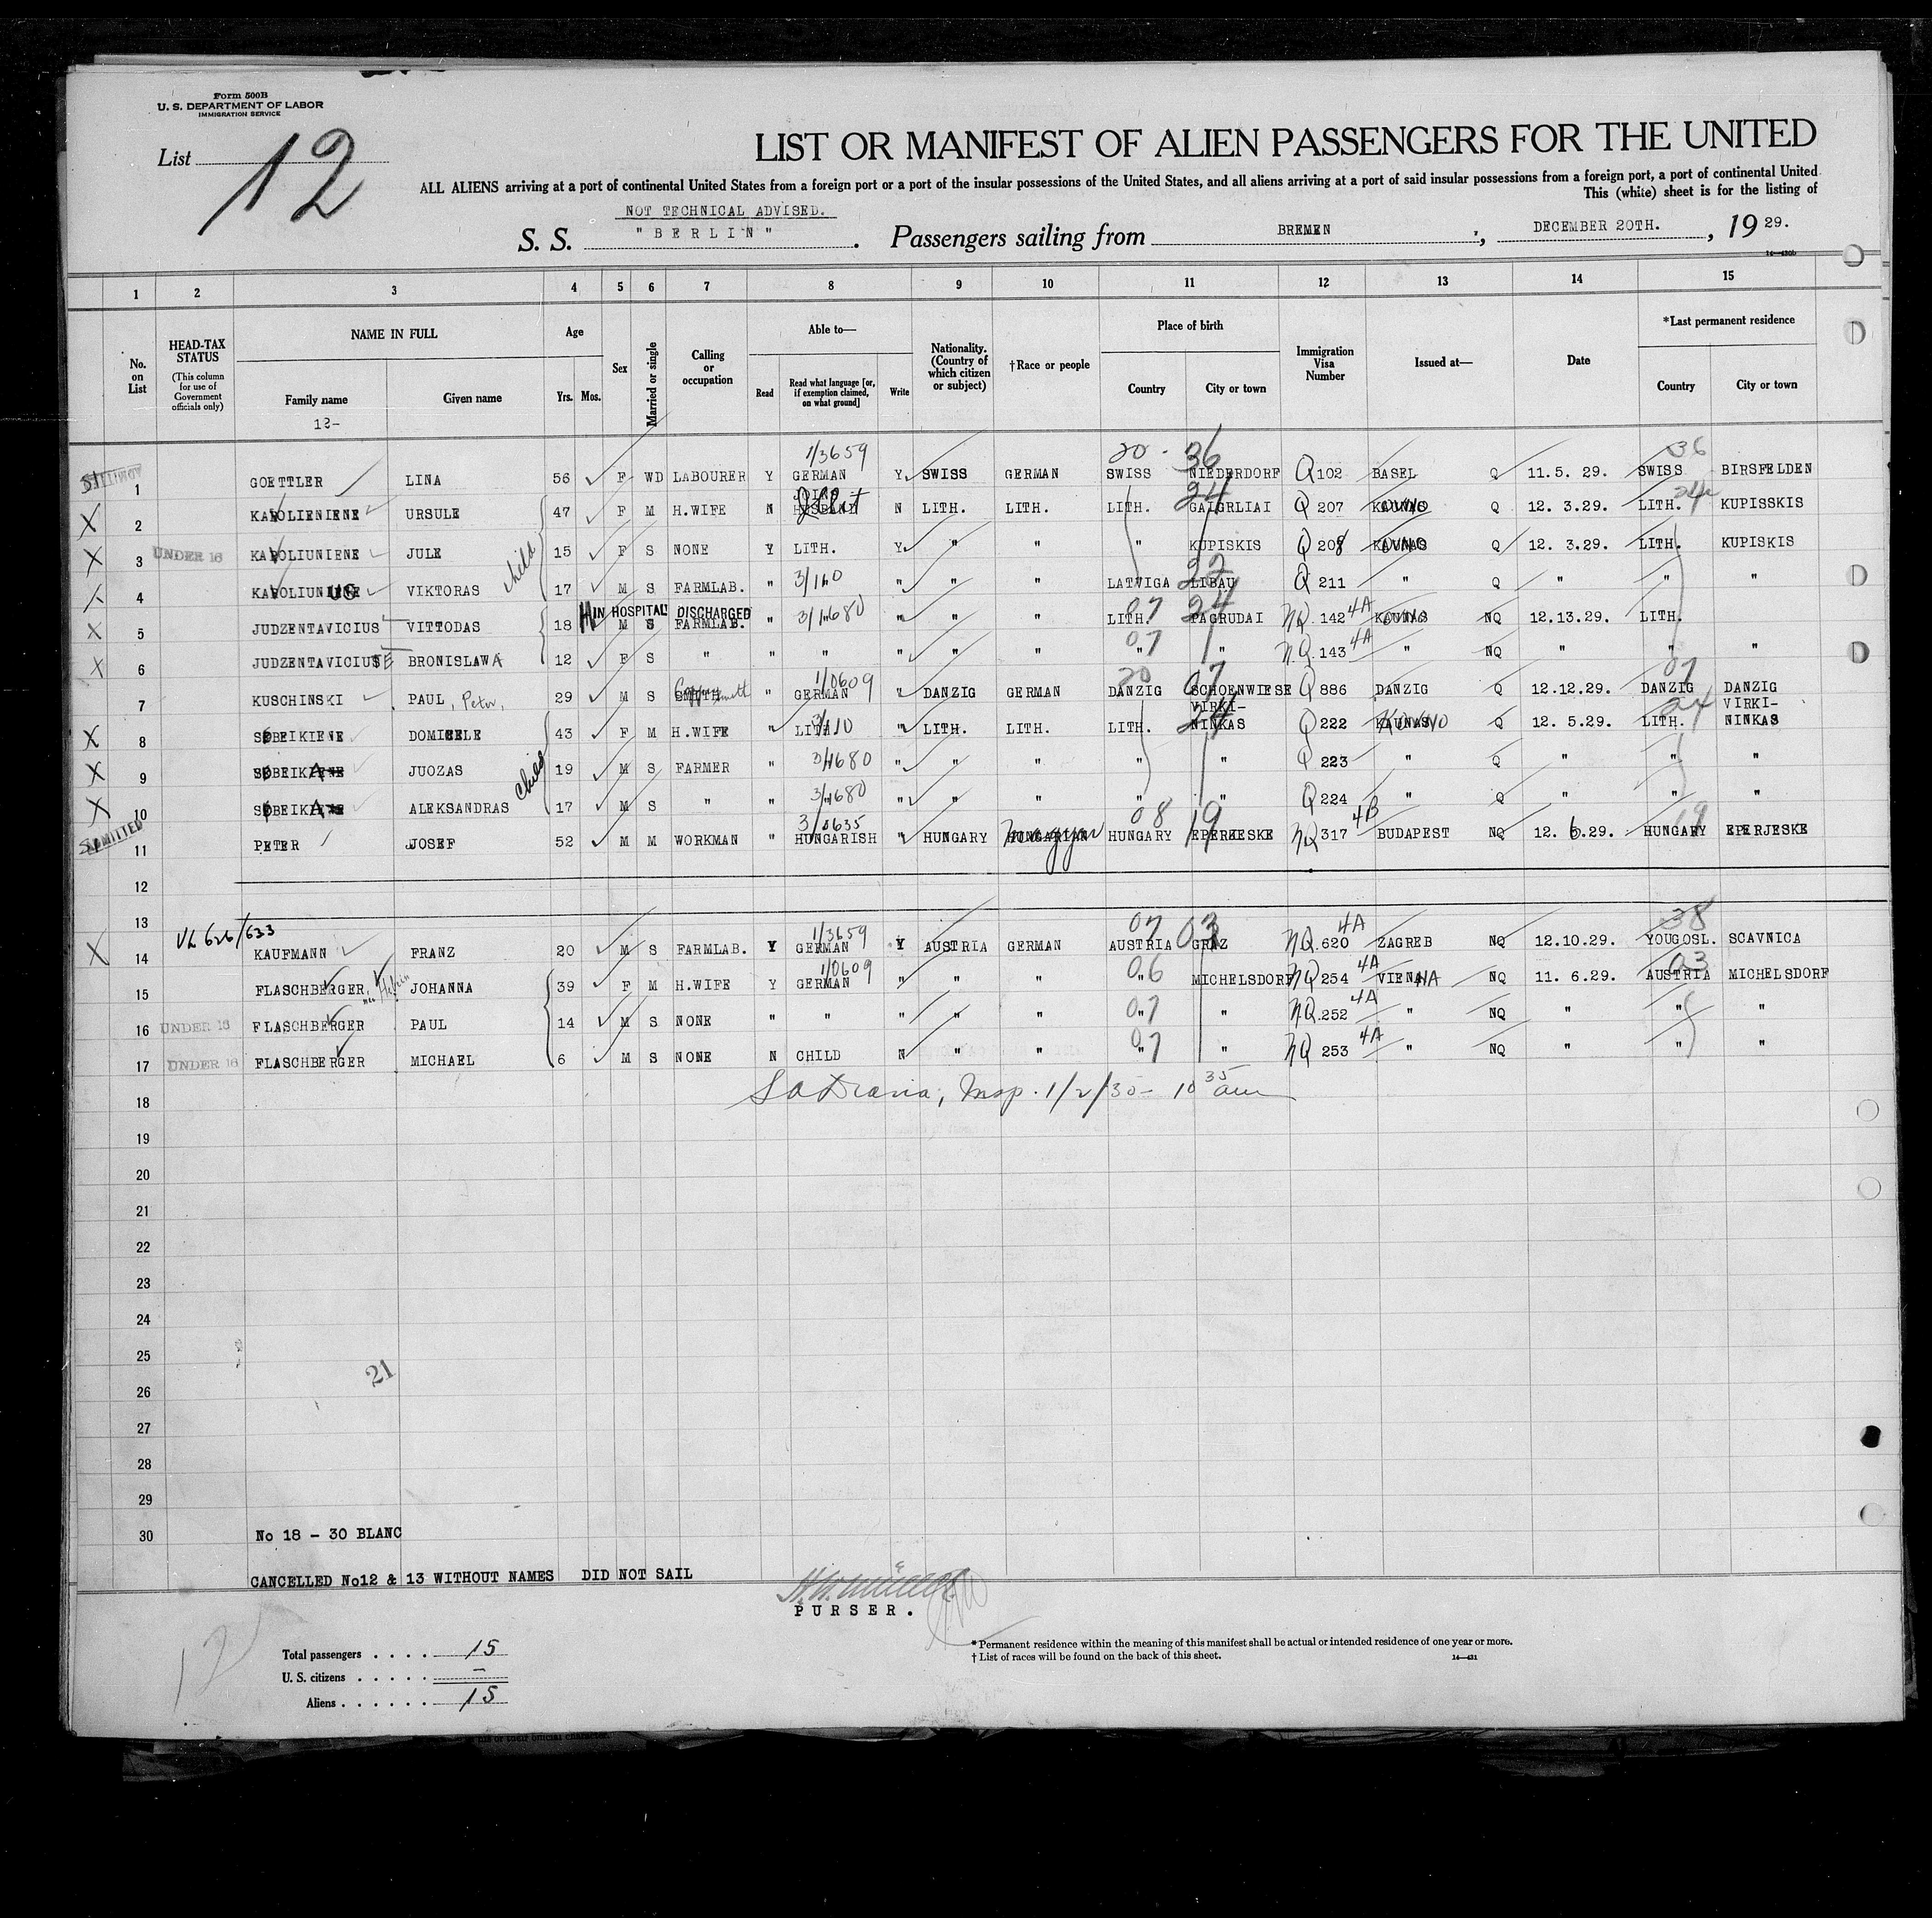 Form 500B
U. S. DEPARTMENT OF LABOR
IMMIGRATION SERVICE
List 12
LIST OR MANIFEST OF ALIEN PASSENGERS FOR THE UNITED
ALL ALIENS arriving at a port of continental United States from a foreign port or a port of the insular possessions of the United States, and all aliens arriving at a port of said insular possessions from a foreign port, a port of continental United
This (white) sheet is for the listing of
NOT TECHNICAL ADVISED.
S. S. "BERLIN". Passengers sailing from BREMEN, DECEMBER 20TH., 1929.
14-430b
1 2 3 4 5 6 7 8 9 10 11 12 13 14 15
No. on List HEAD-TAX STATUS (This column for use of Government officials only) NAME IN FULL Family name Given name Age Yrs. Mos. Sex Married or single Calling or occupation Able to— Read Read what language [or, if exemption claimed, on what ground] Write Nationality. (Country of which citizen or subject) †Race or people Place of birth Country City or town Immigration Visa Number Issued at— Date *Last permanent residence Country City or town
12-
1/3659 20 - 36 36
ADMITTED 1 GOETTLER LINA 56 F WD LABOURER Y GERMAN Y SWISS GERMAN SWISS NIEDERDORF Q 102 BASEL Q 11.5. 29. SWISS BIRSFELDEN
X 2 KAROLIENIENE URSULE 47 F M H.WIFE N N LITH. LITH. LITH. 24 GAIGRLIAI Q 207 KAUNAS Q 12. 3.29. LITH. 24 KUPISSKIS
X 3 UNDER 16 KAROLIUNIENE JULE child 15 F S NONE Y LITH. Y " " " KUPISKIS Q 208 KAUNAS Q 12. 3.29. LITH. KUPISKIS
X 4 VIKTORAS 17 M S FARMLAB. " 3/160 " " " LATVIGA 22 LIBAU Q 211 " Q " " "
IN HOSPITAL DISCHARGED
X 5 JUDZENTAVICIUS VITTODAS 18 M S FARMLAB. " " " " LITH. 07 24 PAGRUDAI NQ 142 4A KAUNAS NQ 12.13.29. LITH. "
X 6 BRONISLAWA 12 F S " " " " " " " 07 " NQ 143 4A " NQ " " "
7 KUSCHINSKI PAUL, Peter, 29 M S SMITH " 1/0609 GERMAN " DANZIG GERMAN DANZIG 20 07 SCHOENWIESE Q 886 DANZIG Q 12.12.29. DANZIG 07 DANZIG
X 8 DOMICELE 43 F M H.WIFE " LITH. " LITH. LITH. LITH. 24 VIRKI-NINKAS Q 222 KAUNAS Q 12. 5.29. LITH. 24 VIRKI-NINKAS
X 9 JUOZAS Child 19 M S FARMER " 3/1680 " " " " " Q 223 " Q " " "
X 10 ALEKSANDRAS 17 M S " " 3/1680 " " " " " Q 224 " Q " " "
ADMITTED 11 PETER JOSEF 52 M M WORKMAN " 3/0635 HUNGARISH " HUNGARY HUNGARIAN Magyar HUNGARY 08 19 EPERJESKE NQ 317 4B BUDAPEST NQ 12. 6.29. HUNGARY 19 EPERJESKE
12
13
VL 626/633 1/3659 07 03 4A 38
X 14 KAUFMANN FRANZ 20 M S FARMLAB. Y GERMAN Y AUSTRIA GERMAN AUSTRIA GRAZ NQ 620 ZAGREB NQ 12.10.29. YOUGOSL. SCAVNICA
15 FLASCHBERGER, JOHANNA 39 F M H.WIFE Y 1/0609 GERMAN " " " " 06 MICHELSDORF NQ 254 4A VIENNA NQ 11. 6.29. AUSTRIA 03 MICHELSDORF
16 UNDER 16 FLASCHBERGER PAUL 14 M S NONE " " " " " " 07 " NQ 252 4A " NQ " " "
17 UNDER 16 FLASCHBERGER MICHAEL 6 M S NONE N CHILD N " " " 07 " NQ 253 4A " NQ " " "
18 Insp. 1/2/30 - 10 35 am
19
20
21
22
23
24
25
21
26
27
28
29
30 No 18 - 30 BLANC
CANCELLED No12 & 13 WITHOUT NAMES DID NOT SAIL
PURSER.
12
Total passengers . . . . 15
U. S. citizens . . . . . –
Aliens . . . . . . 15
* Permanent residence within the meaning of this manifest shall be actual or intended residence of one year or more.
† List of races will be found on the back of this sheet.
14-431